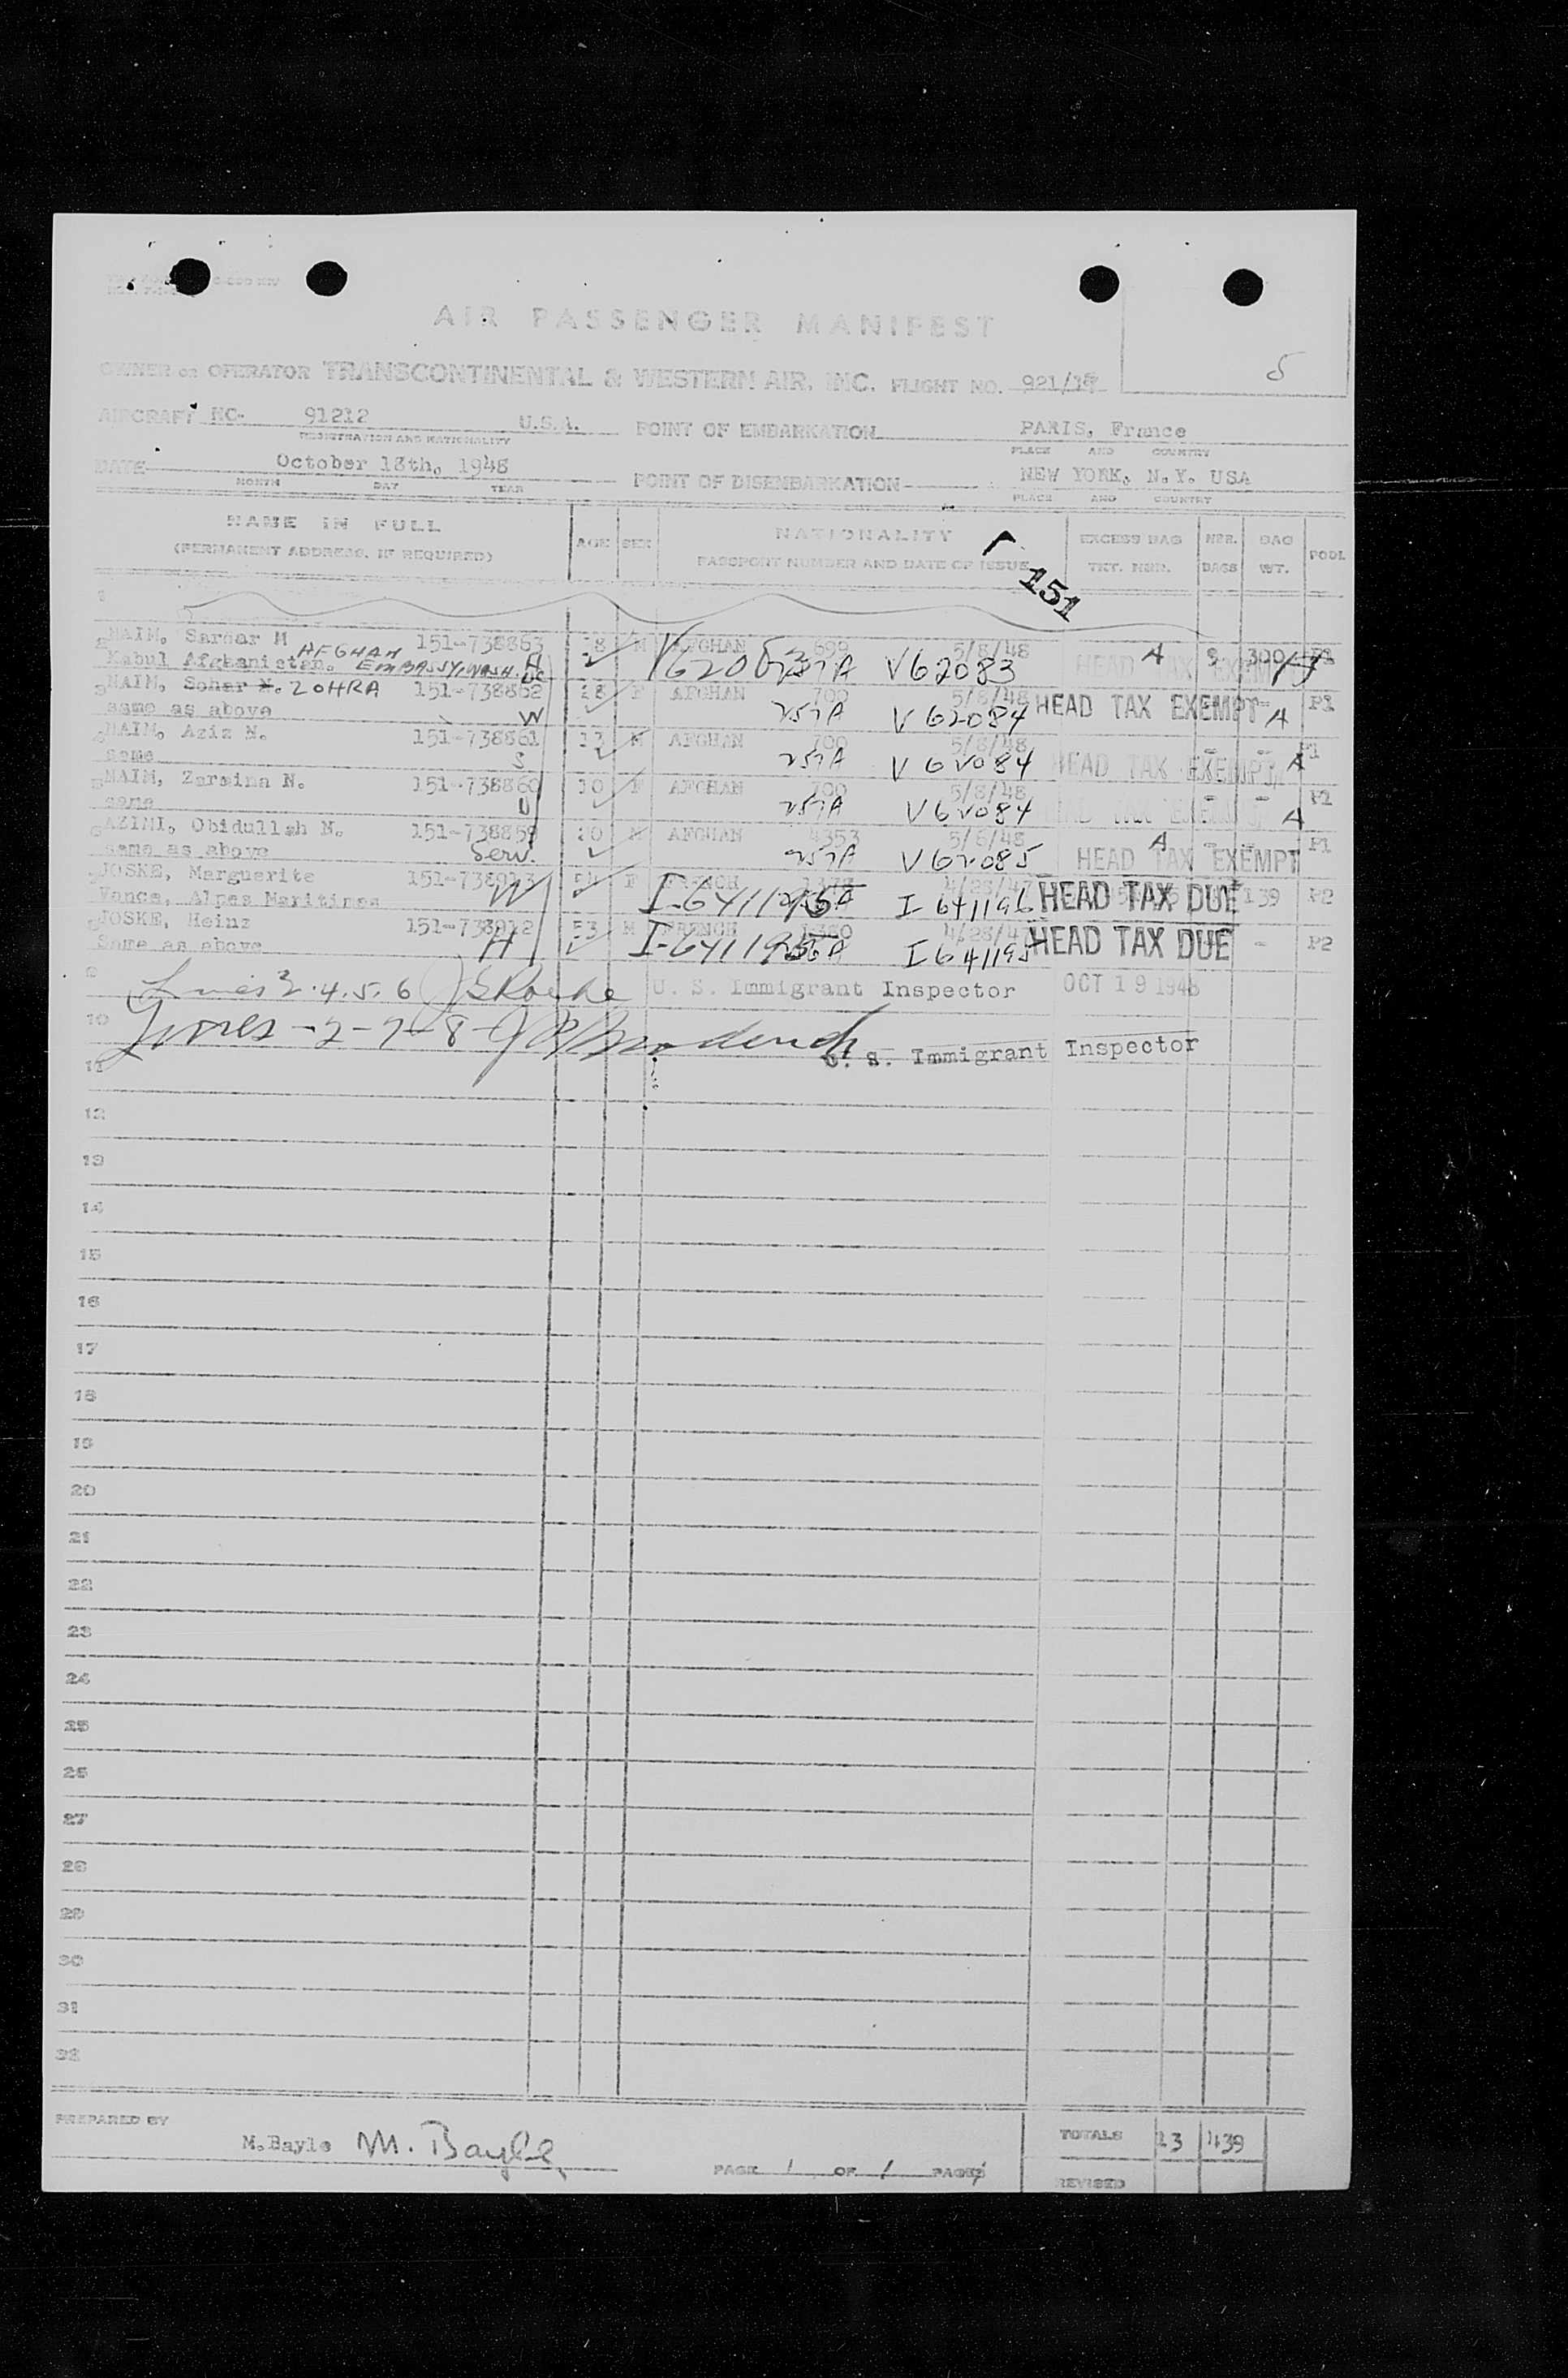 AIR PASSENGER MANIFEST
5
OWNER OR OPERATOR TRANSCONTINENTAL & WESTERN AIR, INC. FLIGHT NO. 921/18
AIRCRAFT NC- 91212 U.S.A. POINT OF EMBARKATION PARIS, France
REGISTRATION AND NATIONALITY PLACE AND COUNTRY
DATE October 18th, 1948 POINT OF DISEMBARKATION NEW YORK, N.Y. USA
MONTH DAY YEAR PLACE AND COUNTRY
NAME IN FULL AGE SEX NATIONALITY EXCESS BAG NBR. BAG POOL
(PERMANENT ADDRESS, IF REQUIRED) PASSPORT NUMBER AND DATE OF ISSUE TKT. NBR. BAGS WT.
151
NAIM, Sardar M 151-738863 M AFGHAN 699 5/8/48 A 300
Kabul Afghanistan. AFGHAN EMBASSY, WASH. DC H V62083 HEAD TAX EXEMPT
NAIM, Sohar N. ZOHRA 151-738862 28 F AFGHAN 700 5/8/48 HEAD TAX EXEMPT P1
same as above W 257A V62084 A
NAIM, Aziz N. 151-738861 M AFGHAN 700 5/8/48 - - P1
same S 257A V62084 HEAD TAX EXEMPT A
NAIM, Zarmina N. 151-738860 10 F AFGHAN 700 5/8/48 - - P1
same D 257A V62084 A
AZIMI, Obidullah N. 151-738859 20 M AFGHAN 4353 5/6/48 A - - P1
same as above Serv. 257A V62085 HEAD TAX EXEMPT
JOSKE, Marguerite 151-738913 54 F FRENCH 4/28/47 139 P2
Vence, Alpes Maritimes W I-641196 HEAD TAX DUE
JOSKE, Heinz 151-738912 53 M FRENCH 4/28/47 - P2
Same as above H I-641195 HEAD TAX DUE
9 Lines 3.4.5.6 U. S. Immigrant Inspector OCT 19 1948
10 Lines -2-7-8-
U. S. Immigrant Inspector
11
12
13
14
15
16
17
18
19
20
21
22
23
24
25
26
27
28
29
30
31
32
PREPARED BY TOTALS 23 439
M.Bayle M. Bayle
PAGE 1 OF 1 PAGES REVISED